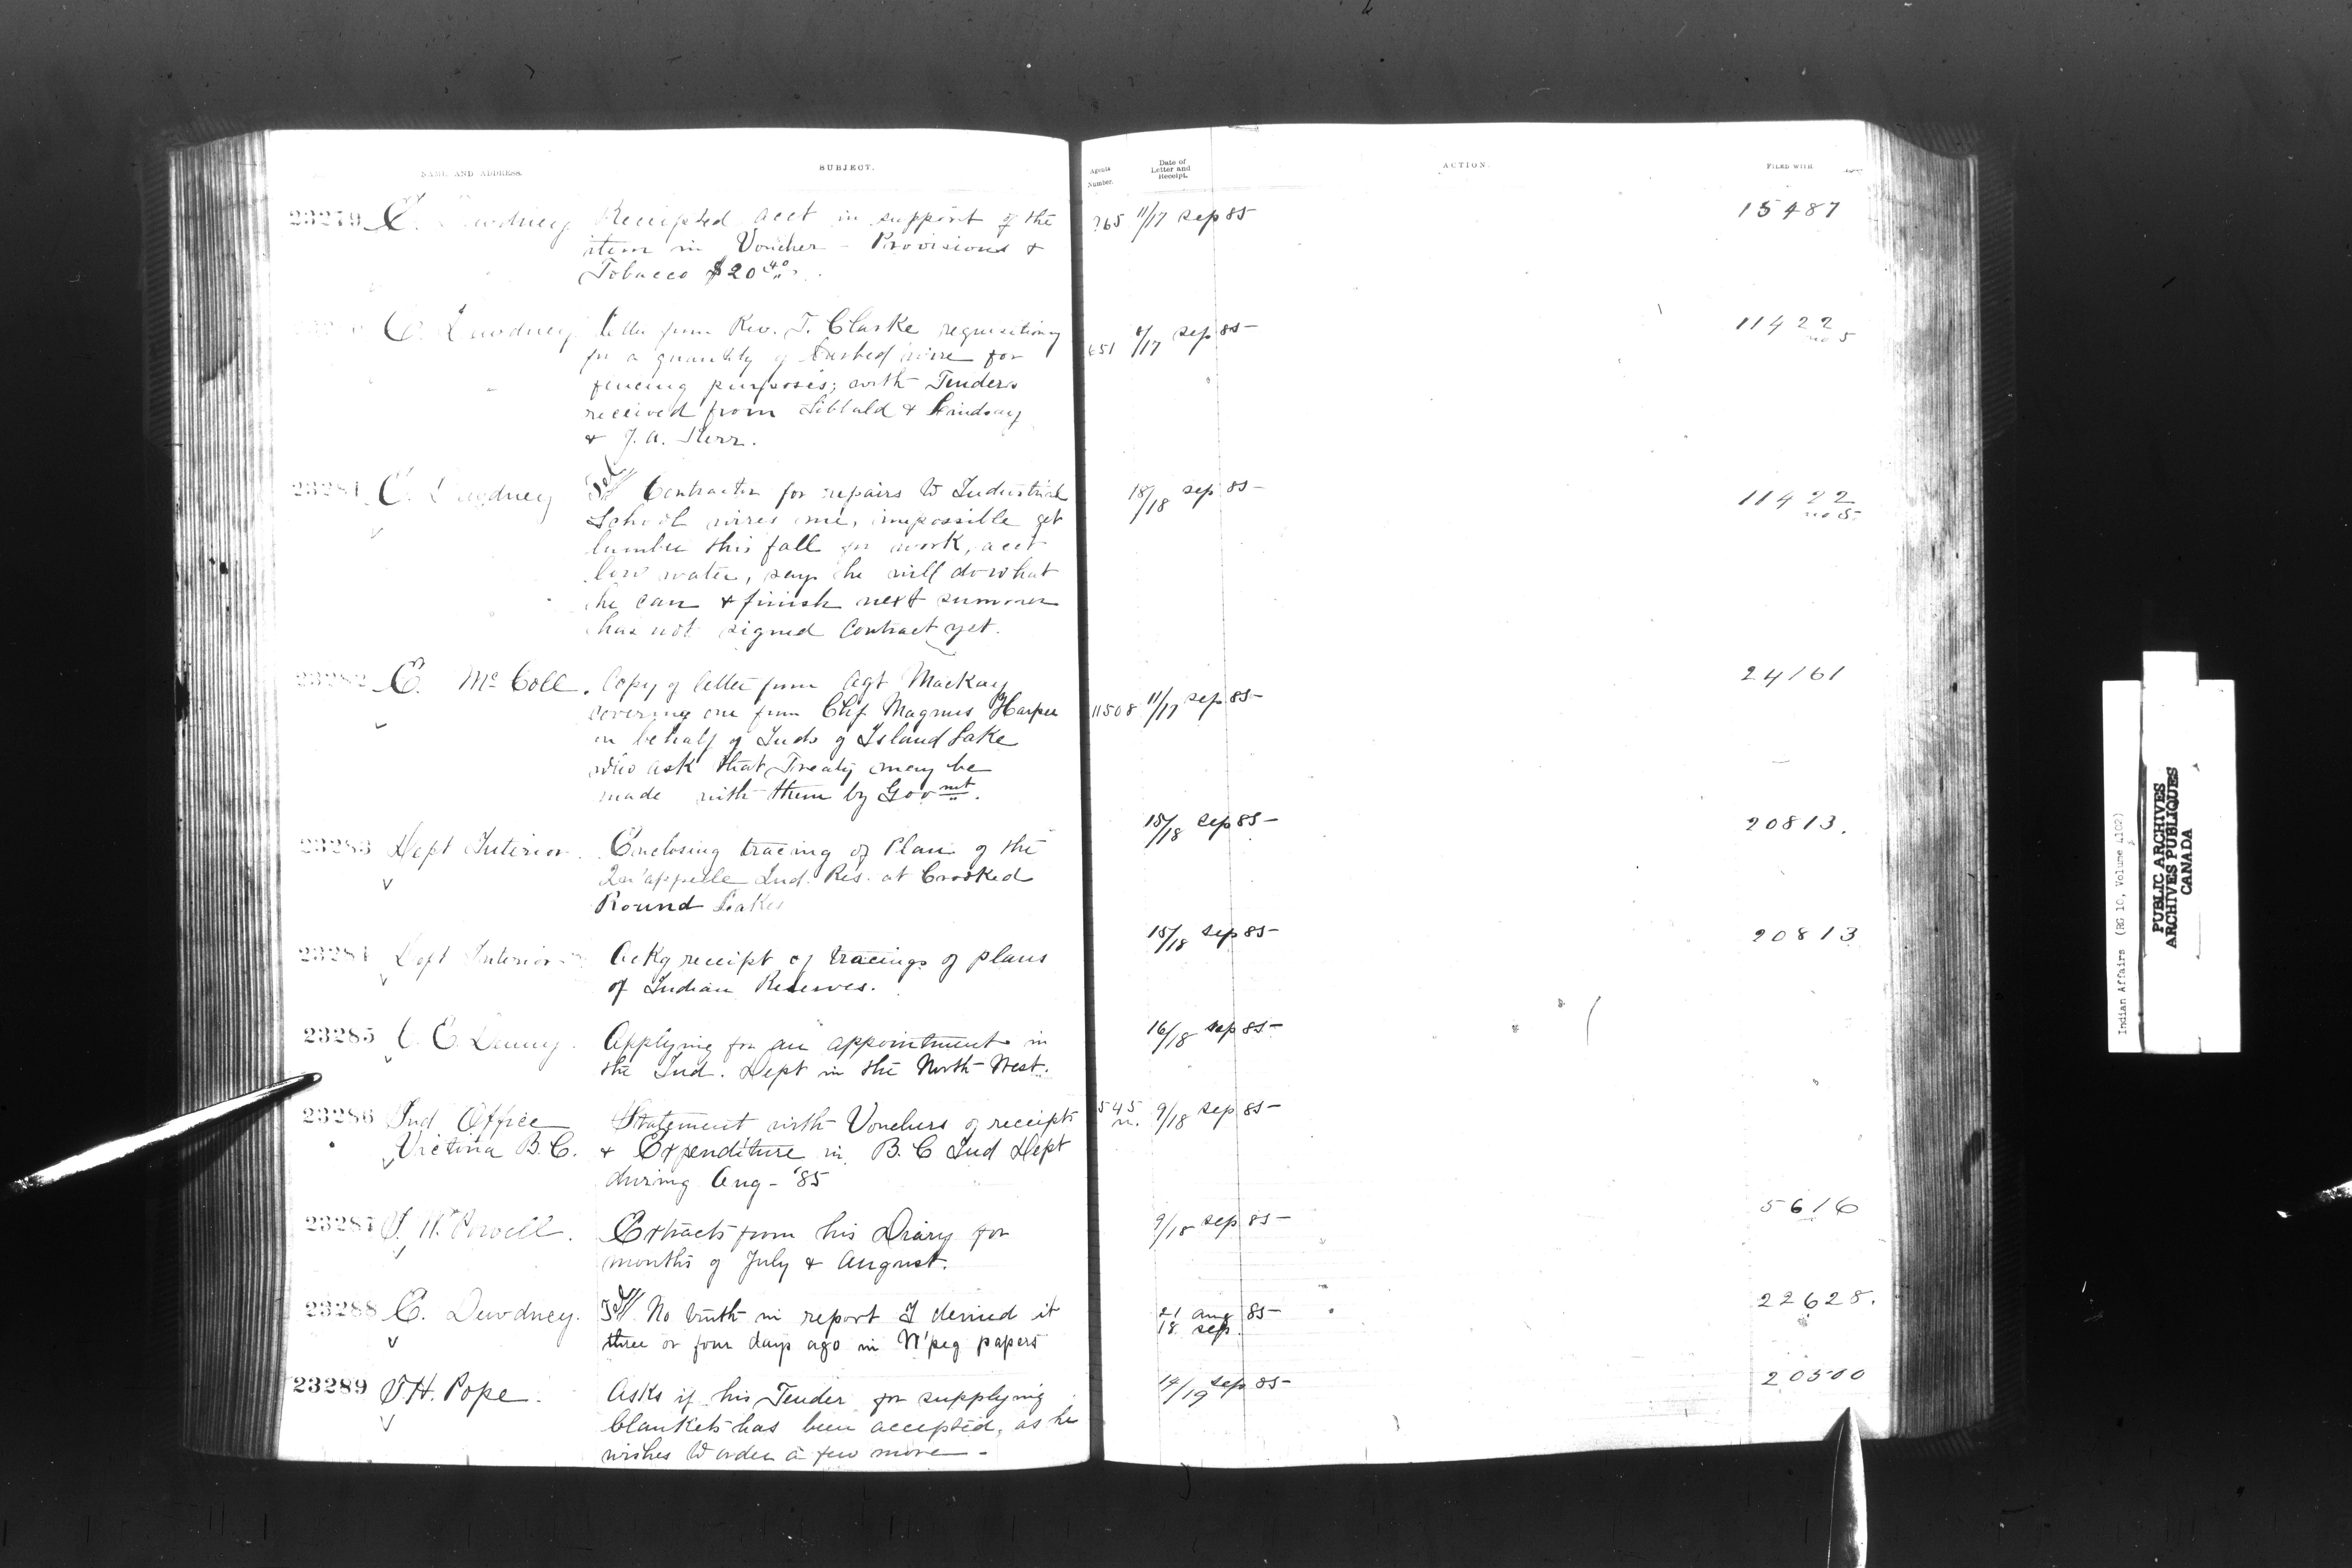 NAME AND ADDRESS.
SUBJECT.
Agents Number.
Date of Letter and Receipt.
ACTION.
FILED WITH
23279 E. Dewdney Receipted acct in support of the 11/17 Sep 85 15487
item in Voucher - Provisions &
Tobacco $20 40
E. Dewdney letter from Rev. T. Clarke requisitioning 651 /17 Sep 85 11422
for a quantity of barbed wire for no 5
fencing purposes; with Tenders
received from Sibbald & Lindsay
& J. A. Kerr.
23281 E. Dewdney Tel Contractor for repairs to Industrial 18/18 Sep 85 11422
School wires me, impossible get no 5
lumber this fall for work, acct
low water, says he will do what
he can & finish next summer
has not signed contract yet.
23282 E. McColl. Copy of letter from Agt Mackay 24161
covering one from Chf Magnus Harper 11508 11/17 Sep 85
on behalf of Inds of Island Lake
who ask that Treaty may be
made with them by Govnmt.
23283 Dept Interior. Enclosing tracing of Plan of the 15/18 Sep 85 20813.
Qu'appelle Ind. Res. at Crooked
Round Lakes
23284 Dept Interior Ackg receipt of tracings of plans 15/18 Sep 85 20813
of Indian Reserves.
23285 C. E. Denny. Applying for an appointment in 16/18 Sep 85
the Ind. Dept in the North-West.
23286 Ind Office Statement with Vouchers of receipts 545 9/18 Sep 85
Victoria B.C. & Expenditure in B.C Ind Dept
during Aug - '85
23287 I. W. Powell. Extracts from his Diary for 9/18 Sep 85 5616
months of July & August.
23288 E. Dewdney. Tel No truth in report I denied it 21 Aug 85 22628.
three or four days ago in W'peg papers 18 Sep
23289 J. H. Pope. Asks if his Tender for supplying 14/19 Sep 85 20500
blankets has been accepted, as he
wishes to order a few more -
Indian Affairs (RG 10, Volume 1102)
PUBLIC ARCHIVES
ARCHIVES PUBLIQUES
CANADA